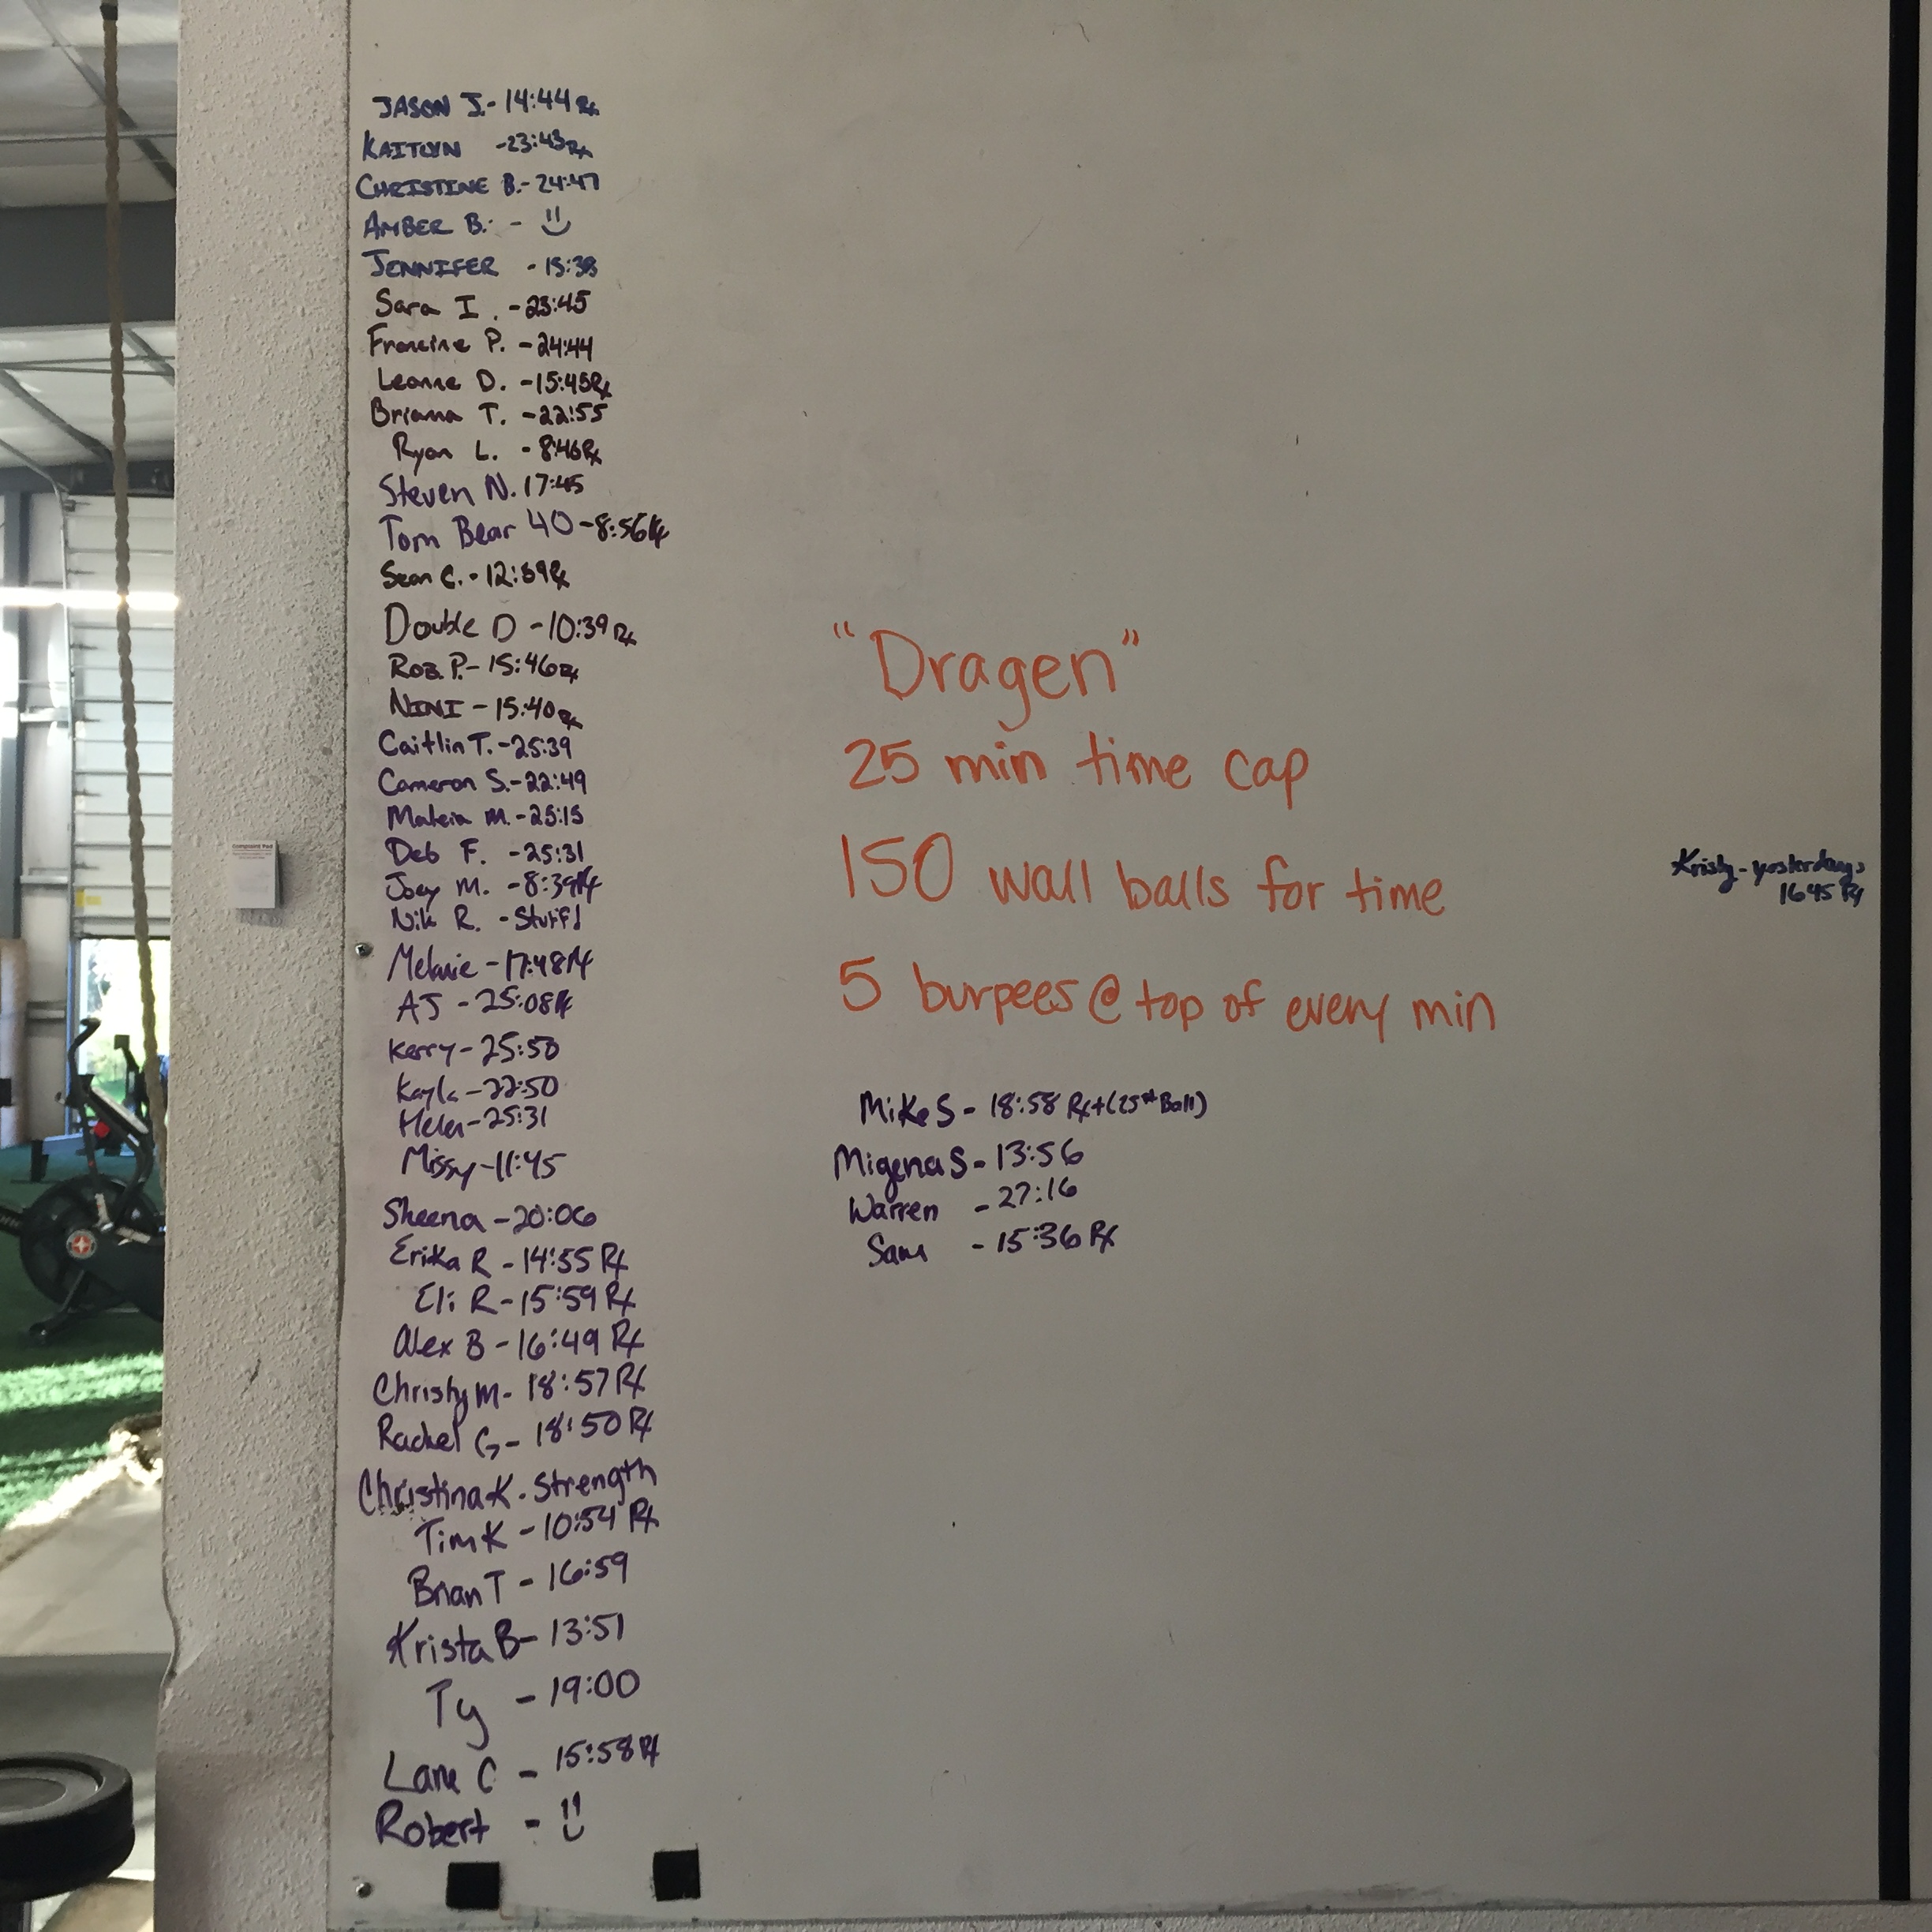 JASON J. - 14:44 Rx
KAITLYN - 23:43 Rx
CHRISTINE B. - 24:47
AMBER B. -
JENNIFER - 15:38
Sara I. - 23:45
Francine P. - 24:44
Leanne D. - 15:45 Rx
Briana T. - 22:55
Ryan L. - 8:46 Rx
Steven N. 17:45
Tom Bear 40 - 8:56 Rx
Sean C. - 12:59 Rx
Double D - 10:39 Rx
Rob P. - 15:46 Rx
NINI - 15:40 Rx
Caitlin T. - 25:39
Cameron S. - 22:49
M. - 25:15
Deb F. - 25:31
Joey M. - 8:39 Rx
Nik R. - Stuff!
Melanie - 17:48 Rx
AJ - 25:08 Rx
Kerry - 25:50
Kayla - 22:50
Helen - 25:31
Missy - 11:45
Sheena - 20:06
Erika R - 14:55 Rx
Eli R - 15:59 Rx
Alex B - 16:49 Rx
Christy M - 18:57 Rx
Rachel G - 18:50 Rx
Christina K. Strength
Tim K - 10:54 Rx
Brian T - 16:59
Krista B - 13:51
Ty - 19:00
Lane C - 15:58 Rx
Robert -
"Dragen"
25 min time cap
150 wall balls for time
5 burpees @ top of every min
Mike S - 18:58 Rx+ (25# Ball)
Migena S - 13:56
Warren - 27:16
Sam - 15:36 Rx
Kristy - yesterdays
1645 Rx
Complaint Pad